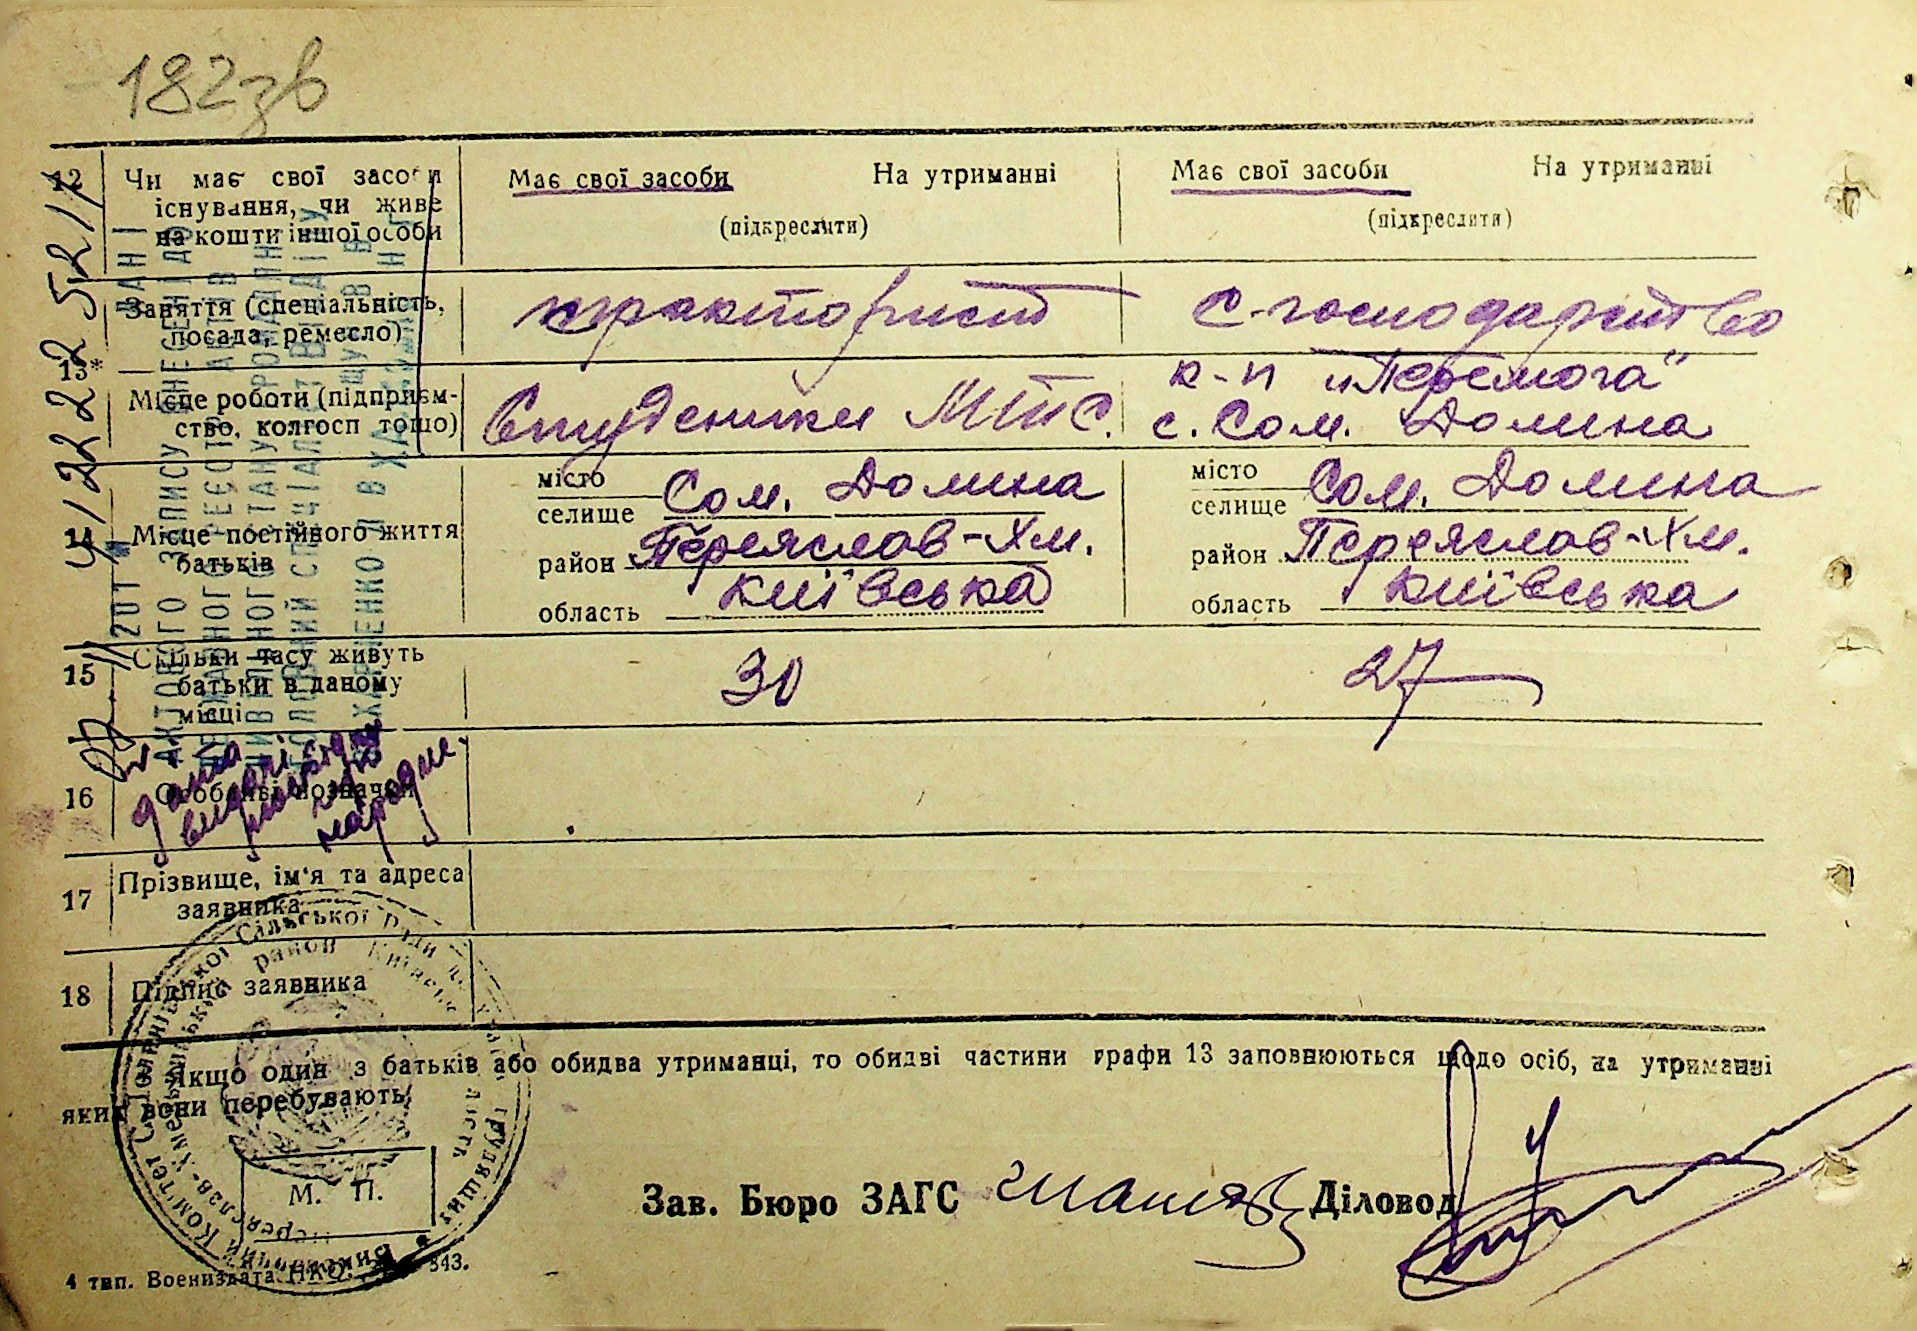 182зв
12 Чи має свої засоби Має свої засоби На утриманні Має свої засоби На утриманні
існування, чи живе (підкреслити) (підкреслити)
на кошти іншої особи
Заняття (спеціальність, тракторист с-господарство
посада, ремесло)
13*
Місце роботи (підприєм- Студеники МТС. к-п "Перемога"
ство, колгосп тощо) с. Сом. Долина
місто місто
селище Сом. Долина селище Сом. Долина
14 Місце постійного життя район Переяслав-Хм. район Переяслав-Хм.
батьків область київська область київська
15 Скільки часу живуть 30 27
батьки в даному
місці
16 Особливі позначки
17 Прізвище, ім'я та адреса
заявника
18 Підпис заявника
Якщо один з батьків або обидва утриманці, то обидві частини графи 13 заповнюються щодо осіб, на утриманні
яких вони перебувають.
М. П.
Зав. Бюро ЗАГС Діловод
4 тип. Воениздата НКО. 343.
ДАНІ
АКТОВОГО ЗАПИСУ ВНЕСЕНІ ДО
ДЕРЖАВНОГО РЕЄСТРУ АКТІВ
ЦИВІЛЬНОГО СТАНУ ГРОМАДЯН
ГОЛОВНИЙ СПЕЦІАЛІСТ ВІДДІЛУ
Виконавчий Комітет Сільської Ради депутатів трудящих
Переяслав-Хмельницький район Київська область